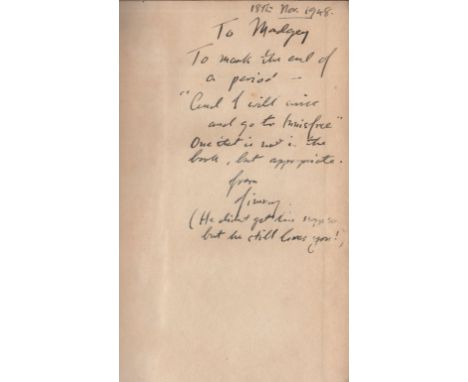 18th Nov. 1948.
To Madgey
To mark the end of
a period —
"And I will arise
and go to Innisfree"
One that is not in the
book, but appropriate.
from
Jimmy.
(He didn't get his
but he still loves you!)